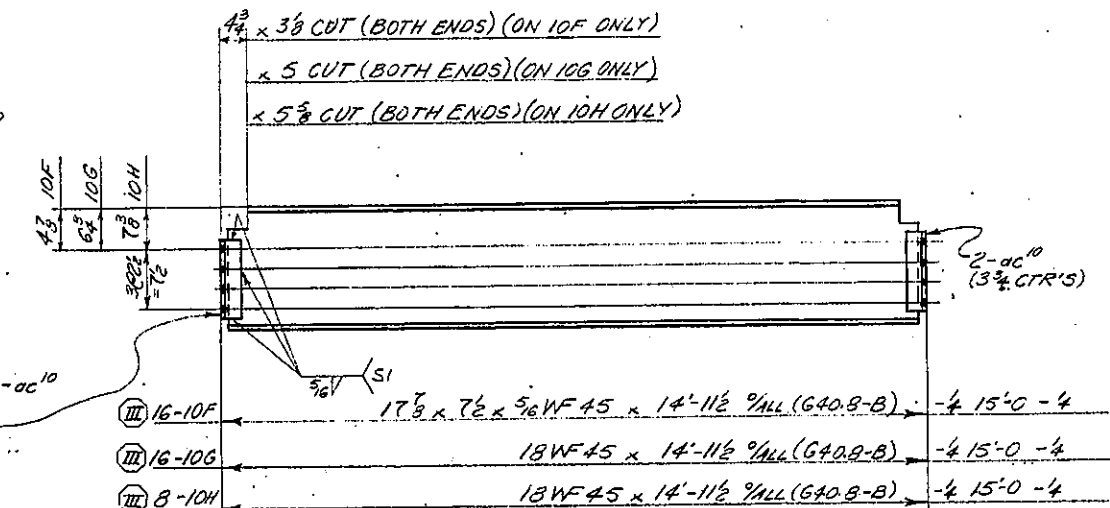 4 3/4 x 3 1/8 CUT (BOTH ENDS) (ON 10F ONLY)
x 5 CUT (BOTH ENDS) (ON 10G ONLY)
x 5 5/8 CUT (BOTH ENDS) (ON 10H ONLY)
4 7/8 10F
6 3/4 10G
7 3/8 10H
3@2 1/2
=7 1/2
2-ac10
(3 3/4 CTR'S)
-ac10
5/16 S1
III 16-10F 17 7/8 x 7 1/2 x 5/16 WF 45 x 14'-11 1/2 O/ALL (G40.8-B) -1/4 15'-0 -1/4
III 16-10G 18 WF 45 x 14'-11 1/2 O/ALL (G40.8-B) -1/4 15'-0 -1/4
III 8-10H 18 WF 45 x 14'-11 1/2 O/ALL (G40.8-B) -1/4 15'-0 -1/4